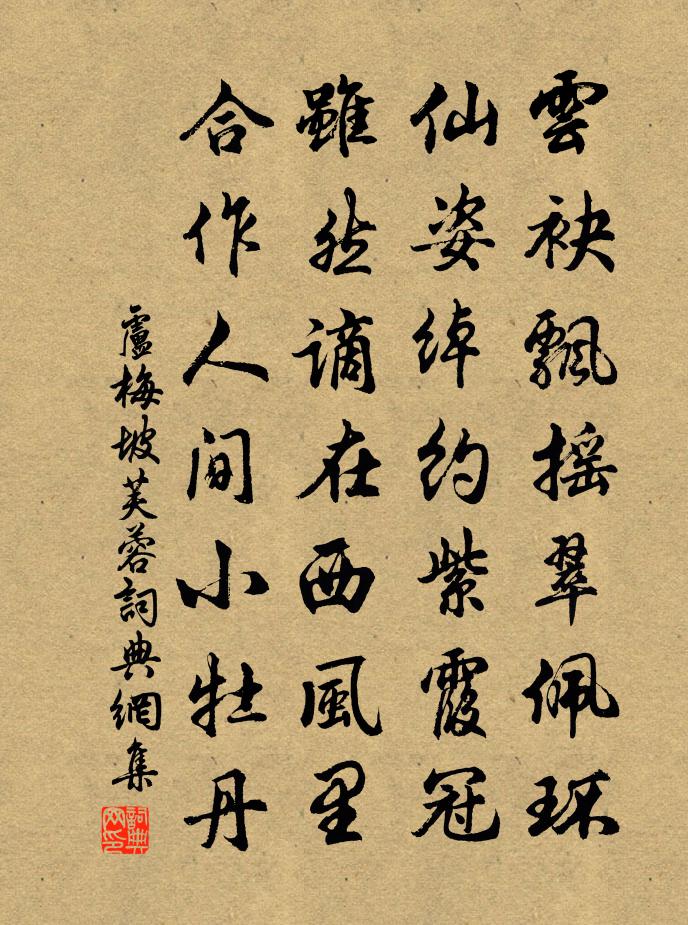 雲袂飄摇翠佩环
仙姿绰约紫霞冠
雖然謫在西風里
合作人间小牡丹
盧梅坡芙蓉詞典網集
詞典网印